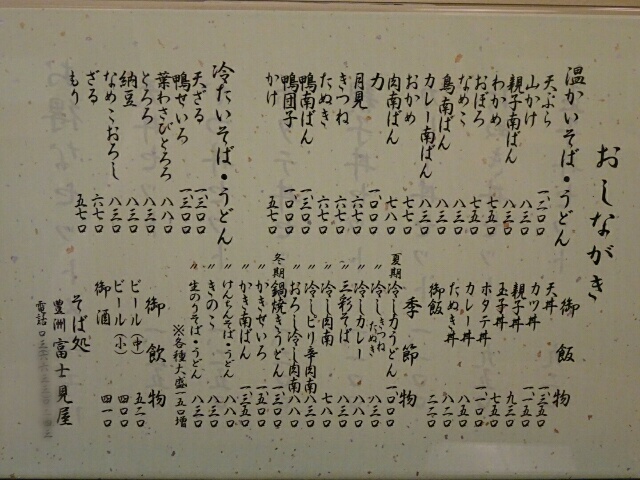 おしながき
温かいそば・うどん
天ぷら 一、二〇〇
山かけ 八三〇
親子南ばん 八三〇
わかめ 七五〇
おぼろ 七五〇
なめこ 八三〇
鳥南ばん 八三〇
カレー南ばん 八三〇
おかめ 七七〇
肉南ばん 七八〇
力 一、〇〇〇
月見 六七〇
きつね 六七〇
たぬき 六七〇
鴨南ばん 一、三〇〇
鴨団子 一、〇〇〇
かけ 五七〇
冷たいそば・うどん
天ざる 一、三〇〇
鴨せいろ 一、三〇〇
葉わさびとろろ 八八〇
とろろ 八三〇
納豆 八三〇
なめこおろし 八三〇
ざる 六七〇
もり 五七〇
御飯物
天丼 一、三五〇
カツ丼 一、一五〇
親子丼 九三〇
玉子丼 七五〇
ホタテ丼 一、一〇〇
カレー丼
たぬき丼
御飯 二二〇
季節物
夏期 冷し力うどん 一、〇〇〇
〃 冷しきつね たぬき 八三〇
〃 冷しカレー 八八〇
〃 三彩そば 八三〇
〃 冷し肉南 七八〇
〃 冷しピリ辛肉南 八三〇
〃 おろし冷し肉南 八八〇
冬期 鍋焼きうどん 一、三〇〇
〃 かきせいろ 一、三五〇
〃 かき南ばん 一、三五〇
〃 けんちんそば・うどん 八八〇
〃 きのこ 八三〇
〃 生のりそば・うどん 八三〇
※各種大盛一五〇増
御飲物
ビール(中) 五二〇
ビール(小) 四〇〇
御酒 四一〇
そば処
豊洲 富士見屋
電話